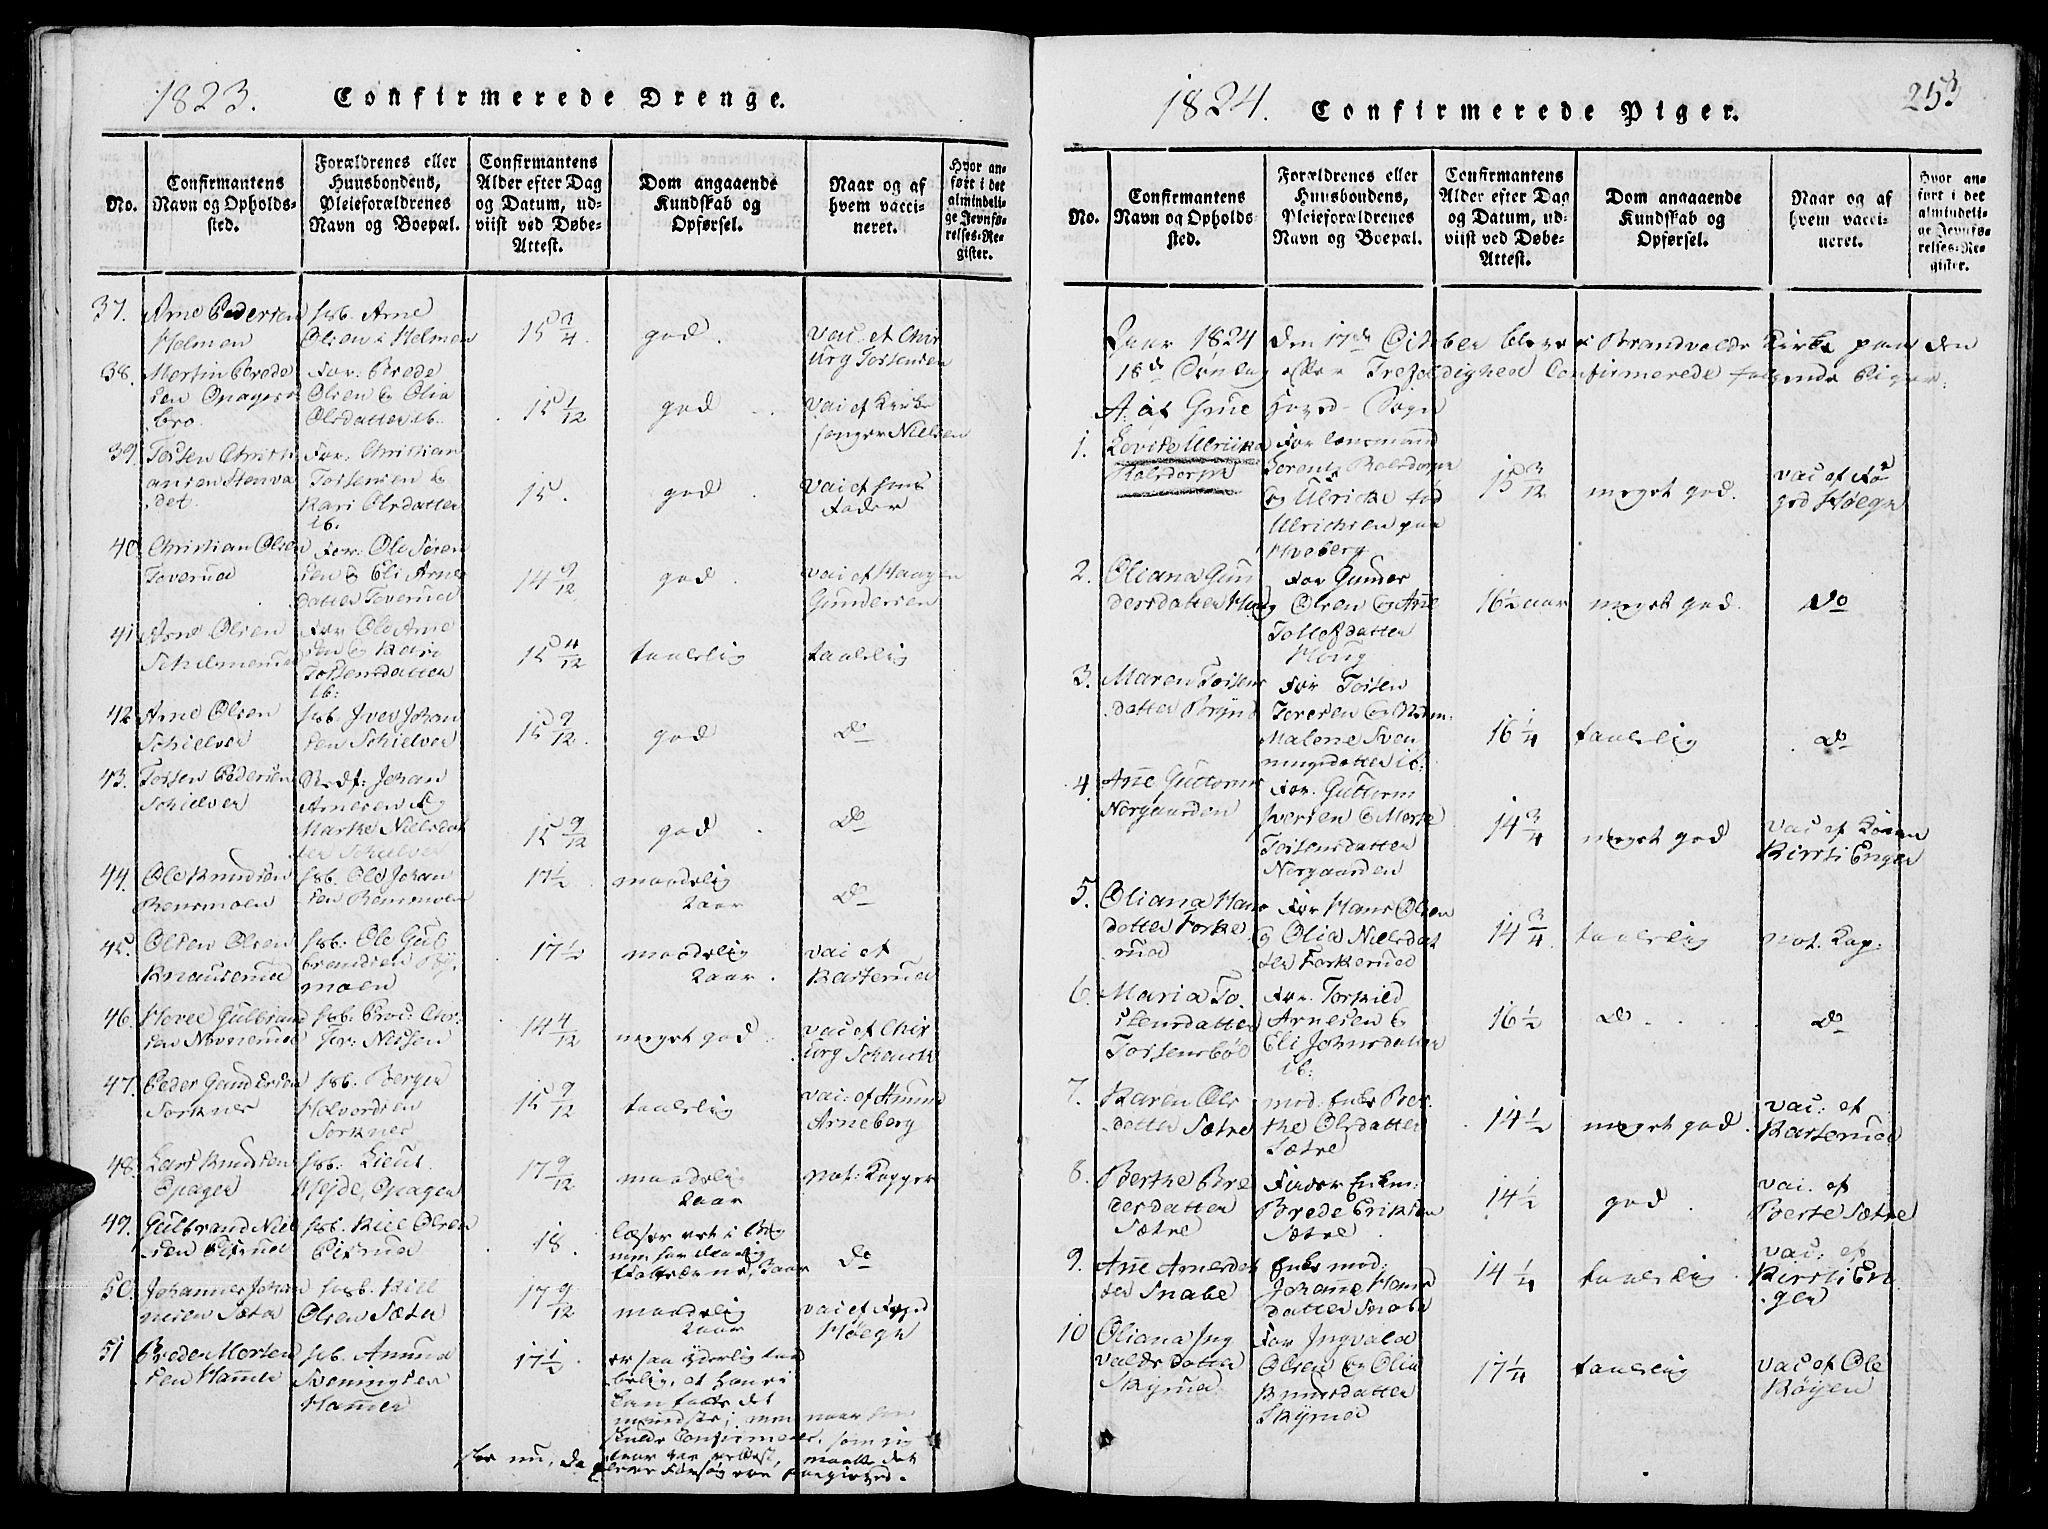 1823. Confirmerede Drenge.
No.
Confirmantens
Navn og Opholds-
sted.
Forældrenes eller
Huusbondens,
Pleieforældrenes
Navn og Boepæl.
Confirmantens
Alder efter Dag
og Datum, ud-
viist ved Døbe-
Attest.
Dom angaaende
Kundskab og
Opførsel.
Naar og af
hvem vacci-
neret.
Hvor an-
ført i det
almindeli-
ge Jevnfø-
relses-Re-
gister.
37.
Arne Pedersen
Holmen
Hsb. Arne
Olsen i Holmen
15 3/4
god.
Vac. af Chir
urg Tostensen
38.
Mortin Brede
sen Opagers
bro.
For: Brede
Olsen & Olia
Olsdatter ib.
15 1/12
god
Vac af Kirke
sanger Nielsen
39.
Tosten Christi
ansen Stenva
det.
For: Christian
Tostensen &
Kari Olsdatter
ib.
15.
god
Vac af hans
Fader
40.
Christian Olsen
Toverud
For: Ole Søren
sen & Eli Arne
datter Toverud
14 9/12
god.
Vac af Haagen
Gundersen
41.
Arne Olsen
Skulmerud
For Ole Arne
sen & Kari
Tostensdatter
ib:
15 4/12
taalelig
taalelig
42.
Arne Olsen
Schielver
Hsb. Iver Johan
sen Schielver
15 9/12.
god
Do
43.
Tosten Pedersen
Schielver
Johan
Arnesen &
Marthe Nielsdat
ter Schielver
15 9/12
god
Do
44.
Ole Knudsen
Rensmoen
Hsb. Ole Johan
sen Rensmoen
17 1/2
maadelig
2 aar
Do
45.
Olsen Olsen
Knauserud
Hsb: Ole Gul
brandsen
moen
17 1/2
maadelig
2 aar.
vac af
Kasterud
46.
Hovel Gulbrand
sen
Hsb. Proc: Chr:
Fr: Nissen
14 4/12
meget god
vac: af Chir
urg Schauck
47.
Peder Gundersen
Sorknes
Hsb. Berger
Halvorsen
Sorknes
15 9/12
taalelig
vac: af Amund
Arneberg
48.
Lars Knudsen
Opager
Hsb: Lieut.
Hejde, Opager
17 9/12
maadelig
2 aar
nat: Kopper
49.
Gulbrand Niel
sen
Hsb. Kiel Olsen
18.
læser ret i Bog
men
3 aar
Do
50.
Johannes Johan
nesen Sæter
Hsb. Kiel
Olsen Sæter
17 9/12
maadelig
2 aar
vac af Foged
Høegh
51
Brede Morten
sen Hammer
Hsb. Amund
Sveningsen
Hammer
17 1/2
er saa yderlig
at han ei
kan fatte det
mindste; men naar han
skulde Confirmeres, som
maatte det
1824. Confirmerede Piger.
253
No.
Confirmantens
Navn og Opholds-
sted.
Forældrenes eller
Huusbondens,
Pleieforældrenes
Navn og Boepæl.
Confirmantens
Alder efter Dag
og Datum, ud-
viist ved Døbe-
Attest.
Dom angaaende
Kundskab og
Opførsel.
Naar og af
hvem vacci-
neret.
Hvor an-
ført i det
almindeli-
ge Jevnfø-
relses-Re-
gister.
Aar 1824 den 17de October bleve i Brandvolds Kirke paa den
18de Søndag efter Trefoldighed Confirmerede følgende Piger:
A. af Grue Hoved-Sogn
1.
Lovise Ulricka
Rolsdorph
For Lensmand
Lorentz Rolsdorph
& Ulricke fød
Ulrichsen paa
Hveberg
15 3/12
meget god.
vac af Fo
ged Høegh
2.
Oliana Gun
dersdatter Houg
For Gunder
Olsen & Anne
Tollefsdatter
Houg
16 1/2 aar
meget god.
Do
3.
Maren Tostens
datter
For Tosten
Toresen &
Malene Sven
ningsdatter ib:
16 1/4
taalelig
Do
4.
Anne Guttorms
Norgaarden
For. Guttorm
Iversen & Marte
Tostensdatter
Norgaarden
14 3/4
meget god
Vac af Konen
Kirsti Enger
5.
Oliana Hans
datter Torke
rud
For Hans Olsen
& Olia Nielsdat
ter Torkerud
14 3/4.
taalelig
nat. Kop:
6.
Maria To
stensdatter
Tostensbøl
For. Torkild
Arnesen &
Eli Johnsdatter
ib:
16 1/2
Do
Do
7.
Karen Ols
datter Sætre
mod: Enke Ber
the Olsdatter
Sætre
14 1/2
meget god.
vac: af
Kasterud
8.
Berthe Bre
desdatter
Sætre
Fader Enkem:
Brede Eriksen
Sætre
14 1/2
god.
vac. af
Berte Sætre
9.
Anne Arnesdat
ter Snabe
Enke mod:
Johanne Hans
datter Snabe
14 1/4
taalelig
vac: af
Kirsti En
ger
10
Oliana Ing
valdsdatter
Skyrud
For Ingvald
Olsen & Olia
Knudsdatter
Skyrud
17 1/4
taalelig
vac af Ole
Røyen